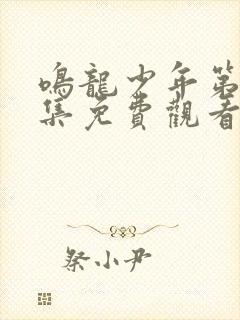 鳴龍少年第
集免費觀看
祭小尹